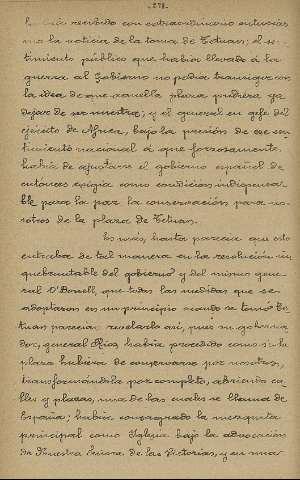 -278-
había recibido con extraordinario entusias
mo la noticia de la toma de Tetuan; el sen
timiento público que había llevado á la
guerra al Gobierno no podía transigir con
la idea de que aquella plaza pudiera ya
dejar de ser nuestra; y el general en gefe del
ejército de Africa, bajo la presión de ese sen
timiento nacional á que forzosamente
había de ajustarse el gobierno español de
entonces exigía como condición indispensa-
ble para la paz la conservación para no-
sotros de la plaza de Tetuan.
Es más, hasta parecía que esto
entraba de tal manera en la resolución in
quebrantable del gobierno y del mismo gene-
ral O'Donell, que todas las medidas que se
adoptaron en un principio cuando se tomó Te
tuan parecían revelarlo así, pues su goberna
dor, general Rios, había procedido como si la
plaza hubiera de conservarse por nosotros,
transformándola por completo, abriendo ca-
lles y plazas, una de las cuales se llama de
España; había consagrado la mezquita
principal como Iglesia bajo la advocación
de Nuestra Señora de las Victorias, y en una